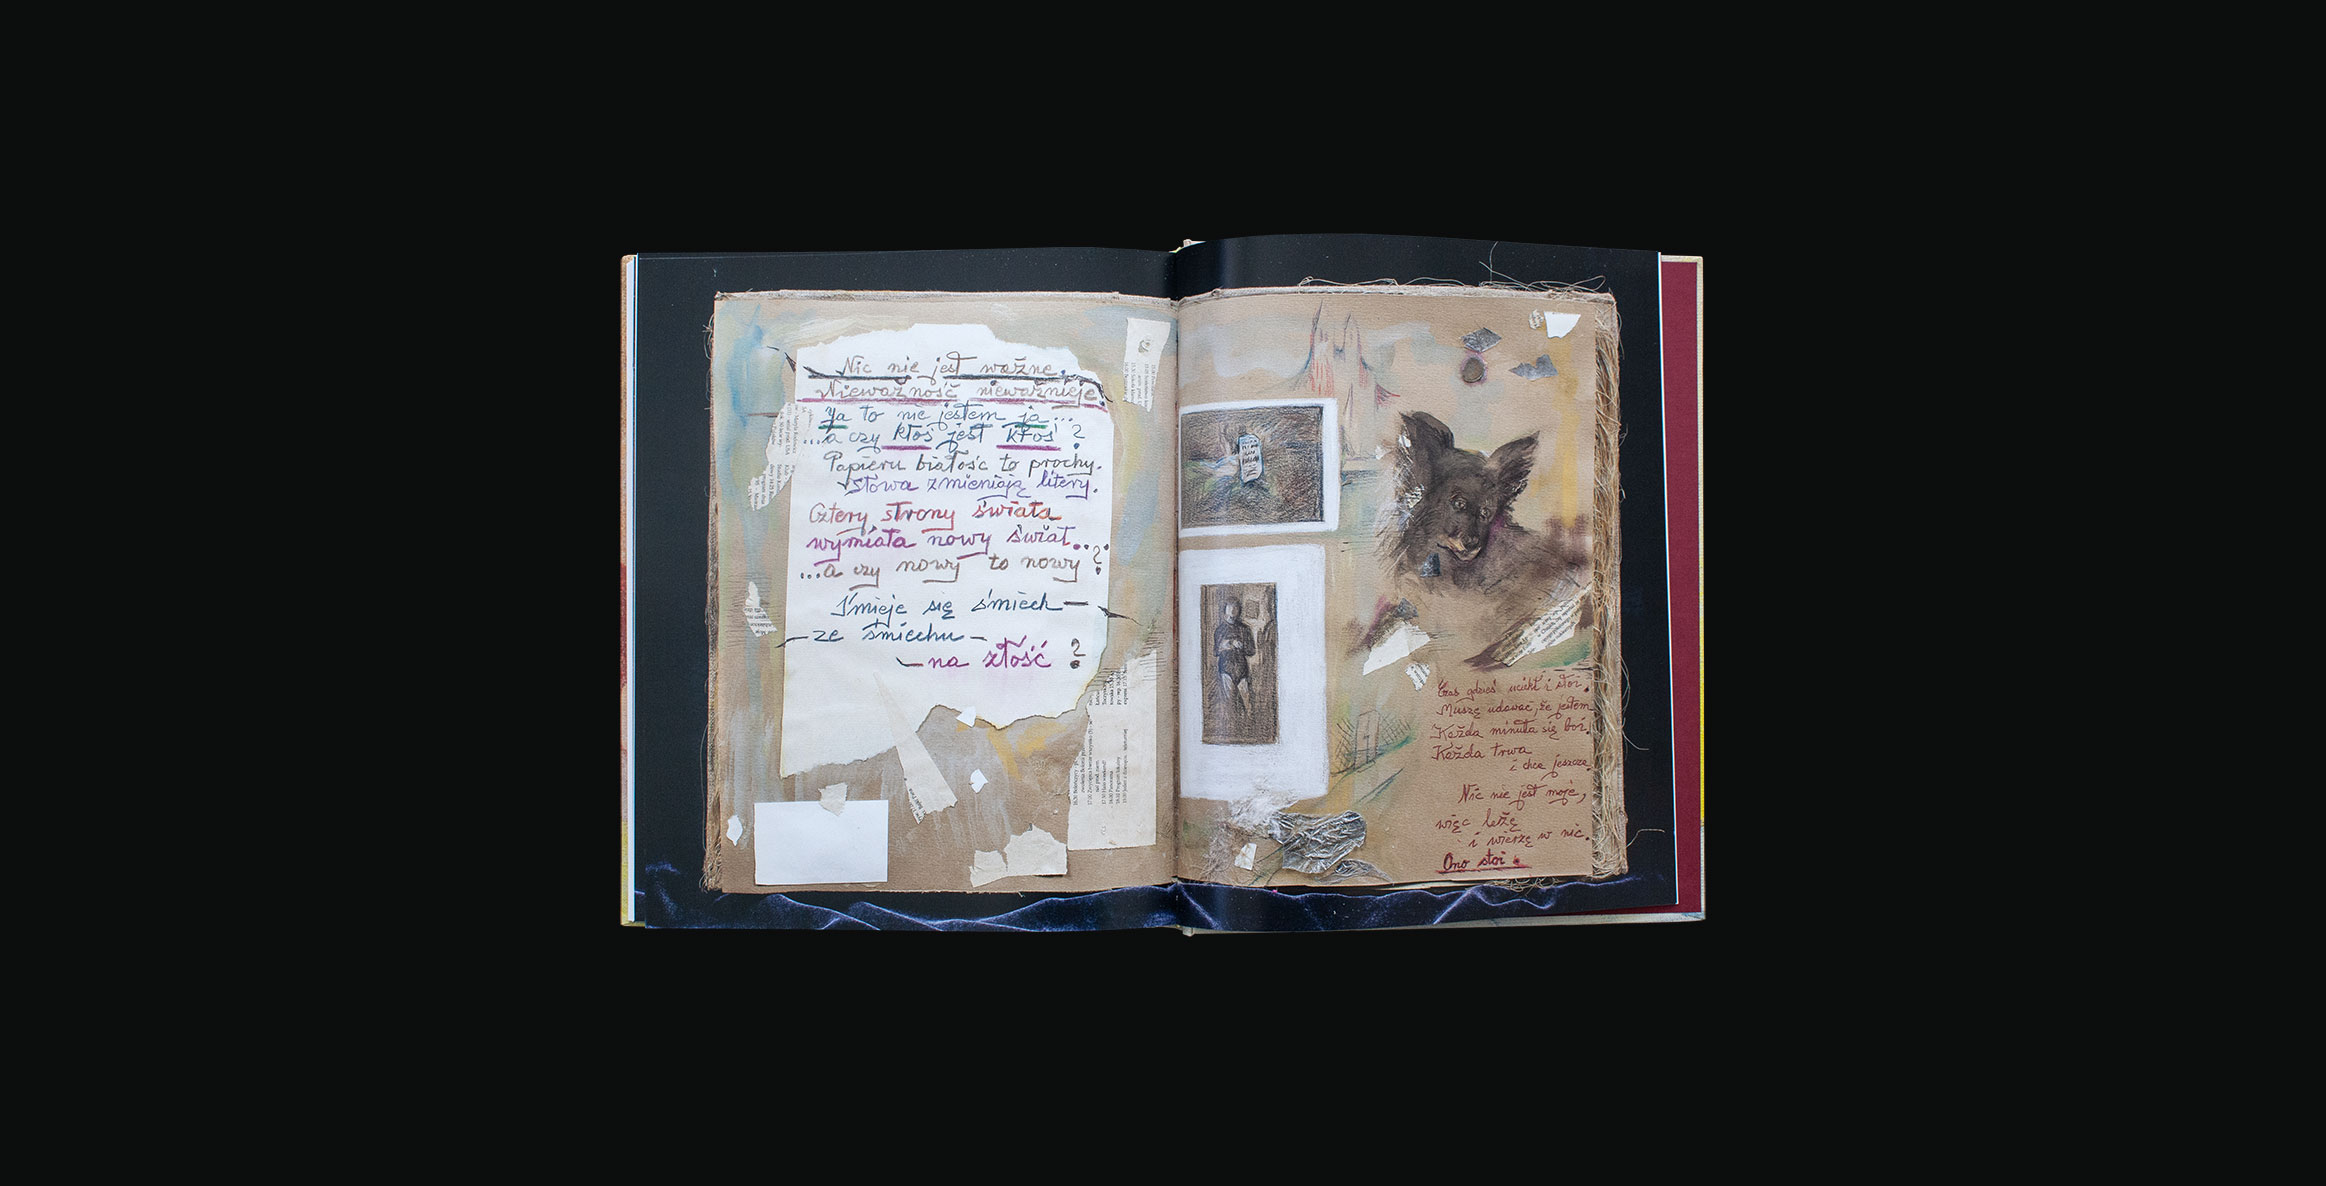 Nic nie jest ważne.
Nieważność nieważnieje.
Ja to nie jestem ja...
...a czy ktoś jest ktoś?
Papieru białość to prochy.
słowa zmieniają litery.
Cztery strony świata
wymiata nowy świat...
...a czy nowy to nowy?
Śmieje się śmiech—
—ze śmiechu—
—na złość?
Czas gdzieś uciekł i stoi.
Muszę udawać, że jestem
Każda minuta się boi.
Każda trwa
i chce jeszcze.
Nic nie jest moje,
więc leżę
i wierzę w nic.
Ono stoi.